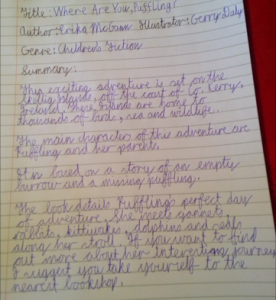 Title: Where Are You, Puffling?
Author: Erika McGann Illustrator: Gerry Daly
Genre: Children's Fiction
Summary:
This exciting adventure is set on the
Skellig Islands, off the coast of Co. Kerry,
Ireland. These islands are home to
thousands of birds, sea and wildlife.
The main characters of this adventure are
Puffling and her parents.
It is based on a story of an empty
burrow and a missing puffling.
The book details Puffling's perfect day
of adventure. She meets gannets,
rabbits, kittiwakes, dolphins and seals
along her stroll. If you want to find
out more about her interesting journey
I suggest you take yourself to the
nearest bookshop.